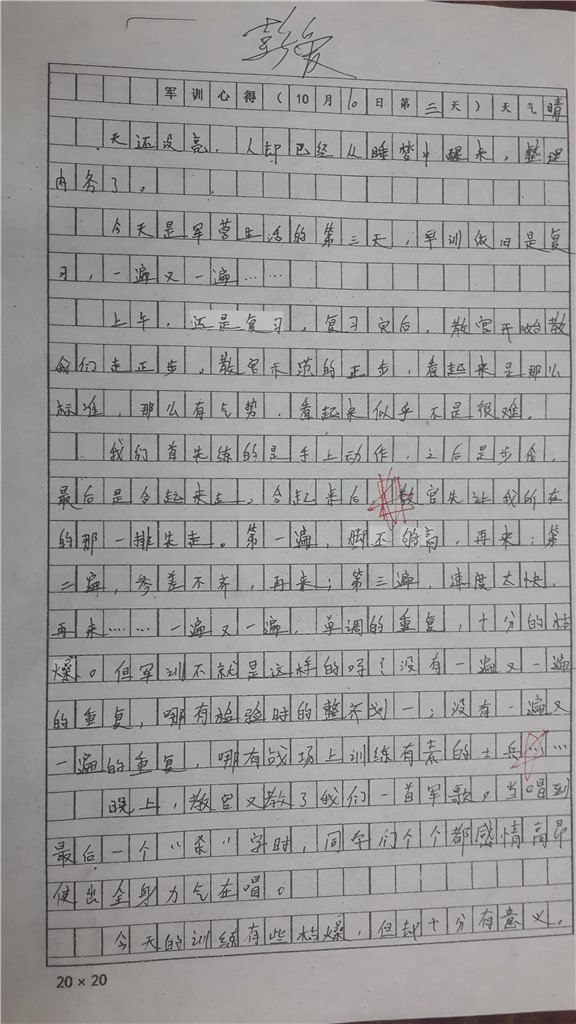 军训心得（10月10日第三天）天气晴
天还没亮，人却已经从睡梦中醒来，整理
内务了。
今天是军营生活的第三天，军训依旧是复
习，一遍又一遍……
上午，还是复习。复习完后，教官开始教
我们走正步。教官示范的正步，看起来是那么
标准，那么有气势，看起来似乎不是很难。
我们首先练的是手上动作，之后是步伐，
最后是合起来走，合起来后教官先让我所在
的那一排先走。第一遍，脚不够高，再来；第
二遍，参差不齐，再来；第三遍，速度太快，
再来……一遍又一遍，单调的重复，十分的枯
燥。但军训不就是这样的吗？没有一遍又一遍
的重复，哪有检验时的整齐划一；没有一遍又
一遍的重复，哪有战场上训练有素的士兵……
晚上，教官又教了我们一首军歌。当唱到
最后一个“杀”字时，同学们个个都感情高昂
使出全身力气在唱。
今天的训练有些枯燥，但却十分有意义。
20×20